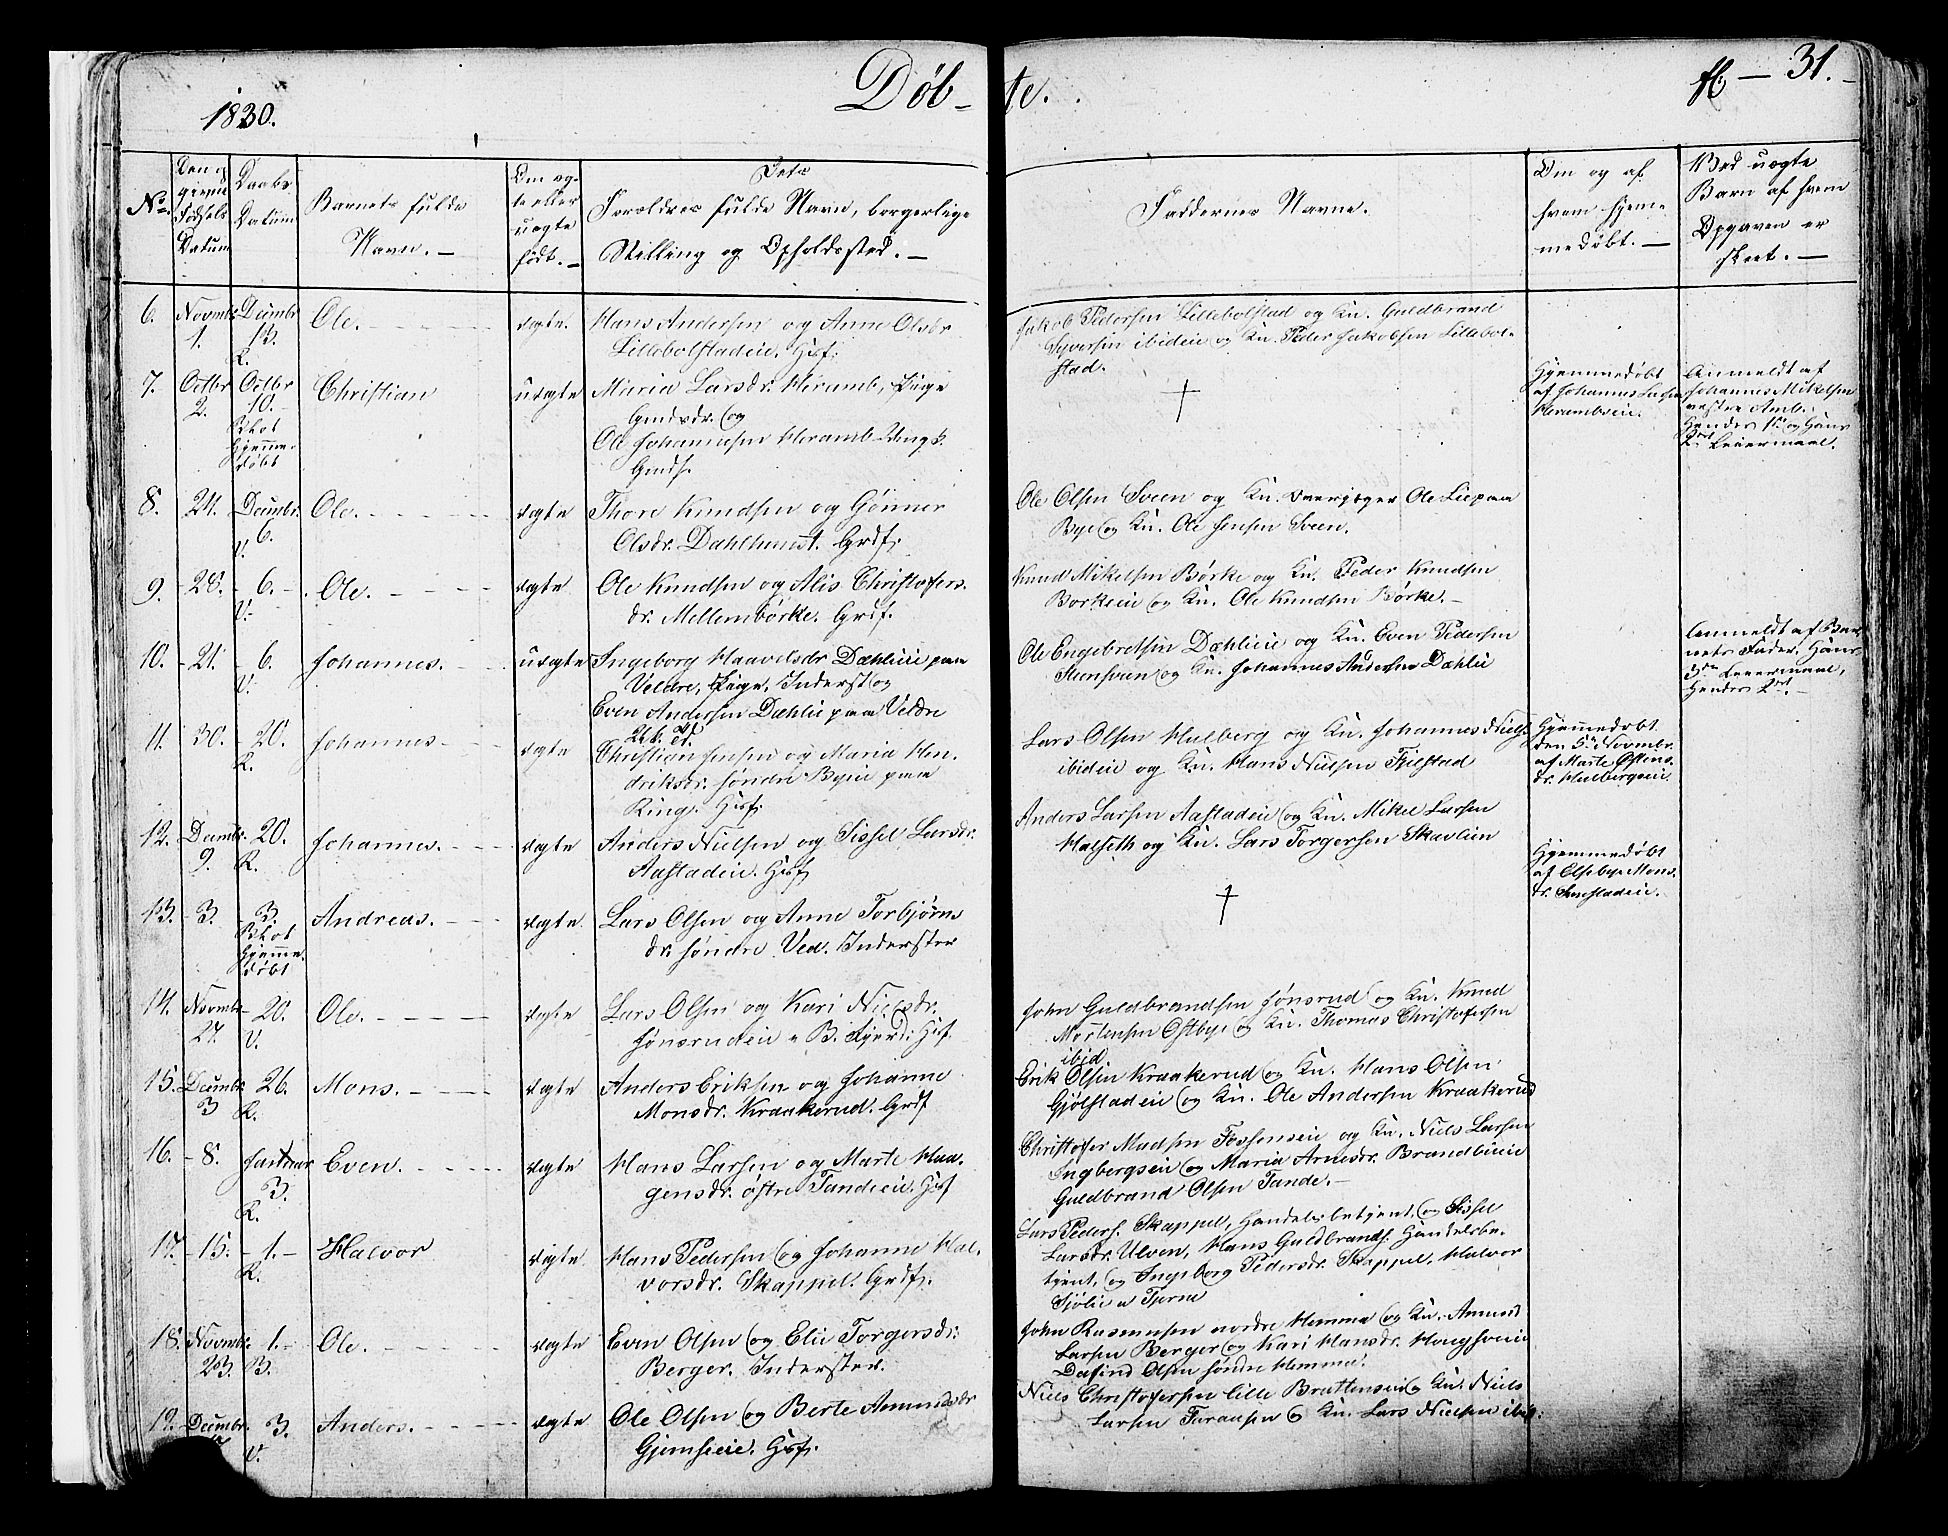 1830.
Døb-
te.
31.
No.
Den op
givne
Fødsels
Datum
Daabs
Datum
Barnets fulde
Navn. —
Om æg-
te eller
uægte
født. —
Dets
Forældres fulde Navn, borgerlige
Stilling og Opholdssted. —
Faddernes Navne.
Om og af
hvem hjem-
medøbt. —
Ved uægte
Barn af hvem
Opgaven er
skeet. —
6. Novmbr 1. Decmbr 13. R. Ole. ægte.
Hans Andersen og Anne Olsdr
Lillebolstadeie. Husf.
Jakob Pedersen Lillebolstad og Kn. Guldbrand
Syversen ibideie og Kn. Peder Jakobsen Lillebol-
stad.
7. Octbr 2. Octbr 10. Christian uægte
Maria Larsdr. Heramb, Pige
og
Ole Johannesen Heramb
†
Hjemmedøbt
af Johannes Larsen
Herambseie.
Anmeldt af
Johannes Mikelsen
vestre Amb.
Hendes 1ste og Hans
2det Leiermaal.
8. 24. Decmbr. 6. V. Ole. ægte
Thore Knudsen og Gønner
Olsdr. Dahlhunst. Grdf.
Ole Olsen Sveen og Kn. Ole Lie paa
Bye og Kn. Ole Jensen Sveen.
9. - 28. - 6. - V. Ole. ægte
Ole Knudsen og Alis Christofers.
dr. Mellembørke. Grdf.
Knud Mikelsen Børke og Kn. Peder Knudsen
Borkeeie og Kn. Ole Knudsen Børke. —
10. - 21. - 6. V. Johannes. uægte
Ingeborg Haavelsdr Dæhlieie paa
Veldre, Pige, Inderst og
Even Andersen Dæhlie paa Veldre
Ole Engebretsen Dæhlieie og Kn. Even Pedersen
Steensveen og Kn. Johannes Andersen Dæhlie
Anmeldt af Bar-
nets Fader, Hans
3die Leiermaal,
Hendes 2det. —
11. - 30. - 20. R. Johannes ægte
Christian Jensen og Maria Hen-
driksdr. søndre Byeie paa
Ring. Husf.
Lars Olsen Hulberg og Kn. Johannes Niels.
ibideie og Kn. Hans Nielsen Fjelstad
Hjemmedøbt
den 5te Novmbr.
af Marte Østens-
dr. Hulbergeie.
12. Decmbr. 9. 20. R. Johannes. ægte
Anders Nielsen og Sissel Larsdr.
Aastadeie. Husf.
Anders Larsen Aastadeie og Kn. Mikel Larsen
Halseth og Kn. Lars Torgersen Skavlien
13. - 3. - 3. Blot Hjemme- døbt Andreas. ægte
Lars Olsen og Anne Torbjørns
dr. søndre Vea. Inderster
†
Hjemmedøbt
af Olsebye Mons-
dr.
14. Novmbr 27. - 20. V. Ole. ægte
Lars Olsen og Kari Nielsdr.
Jønsrudeie B. Fjerd. Husf.
John Guldbrandsen Jønsrud og Kn. Knud
Mortensen Østbye og Kn. Thomas Christofersen
ibid.
15. Decmbr 3 - 26. R. Mons. ægte
Anders Eriksen og Johanne
Monsdr. Kraakerud. Grdf
Erik Olsen Kraakerud og Kn. Hans Olsen
Gjølstadeie og Kn. Ole Andersen Kraakerud
16. - 8. Januar 3. R. Even. ægte
Hans Larsen og Marte Haa-
gensdr. østre Tandeeie. Husf
Christofer Madsen Fossenseie og Kn. Niels Larsen
Ingbergseie og Maria Arnesdr. Brandlieie
Guldbrand Olsen Tande. —
17. - 15. - 1. - R. Halvor ægte
Hans Pedersen og Johanne Hal-
vorsdr. Skappel. Grdf.
Lars Peders. Skappel, Handelsbetjent, og Sissel
Larsdr. Ulven, Hans Guldbrands. Handelsbe-
tjent, og Ingeborg Pedersdr. Skappel, Halvor
Sjølie a Tjerne
18. Novmbr. 23. - 1. - B. Ole. ægte
Even Olsen og Elie Torgersdr.
Berger. Inderster.
John Rasmussen nordre Hemma og Kn. Amund
Larsen Berger og Kari Hansdr. Haugsveie
Dafind Olsen søndre Hemma.
19. Decmbr. 3. V. Anders. ægte
Ole Olsen og Berte Amundsdr
Gjemseeie. Husf.
Niels Christofersen Lille Brattenseie og Kn. Niels
Larsen Faransen og Kn. Lars Nielsen ibid.